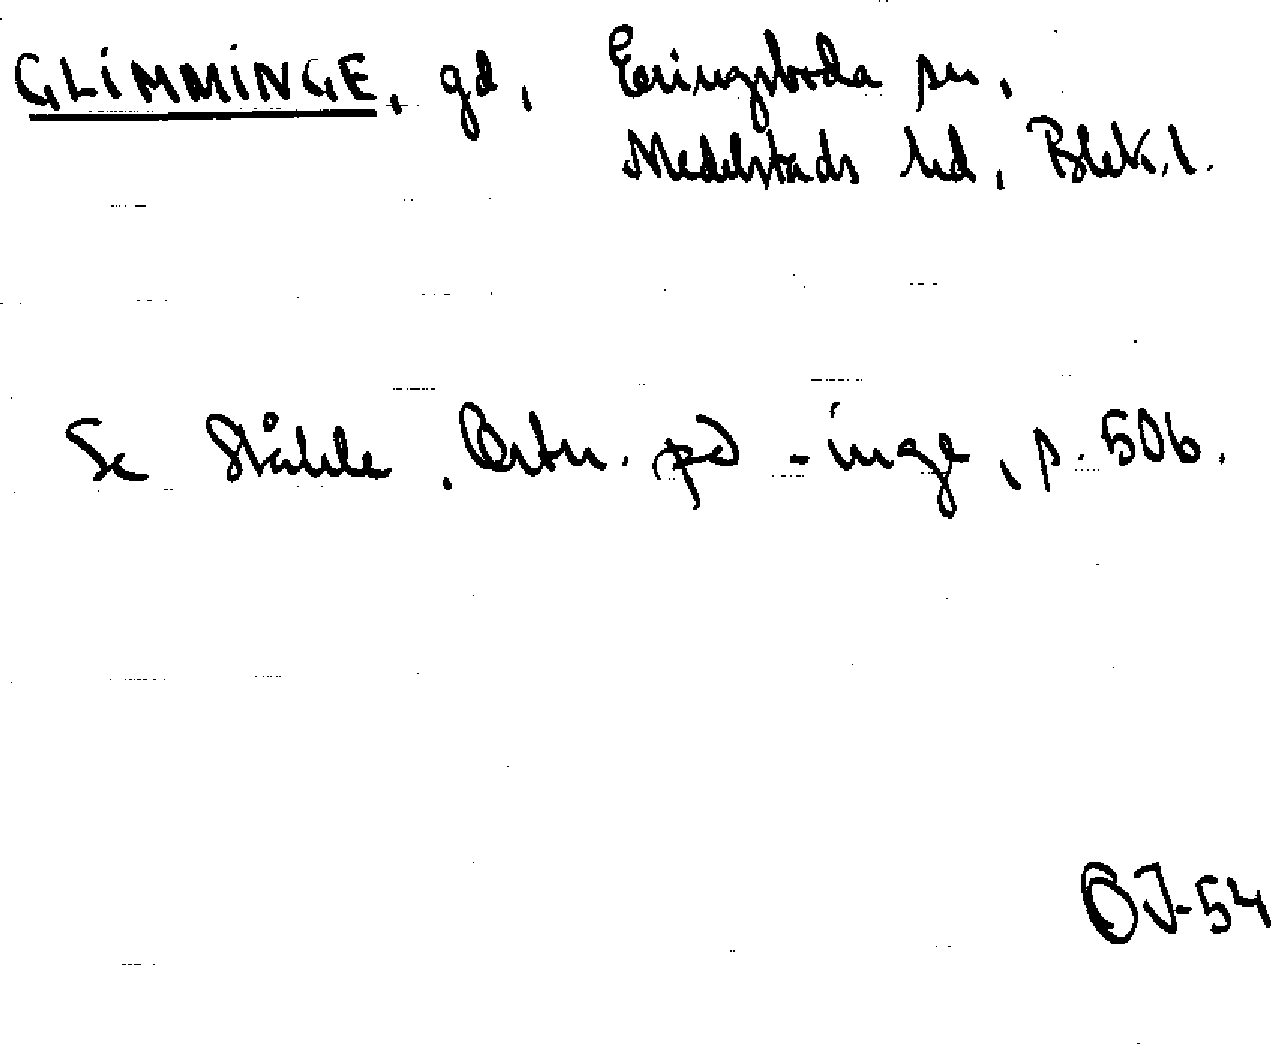 GLIMMINGE, gd, Eringsboda sn,
Medelstads hd, Blek.l.
Se Ståhle, Ortn. på -inge, p. 506.
OJ-54